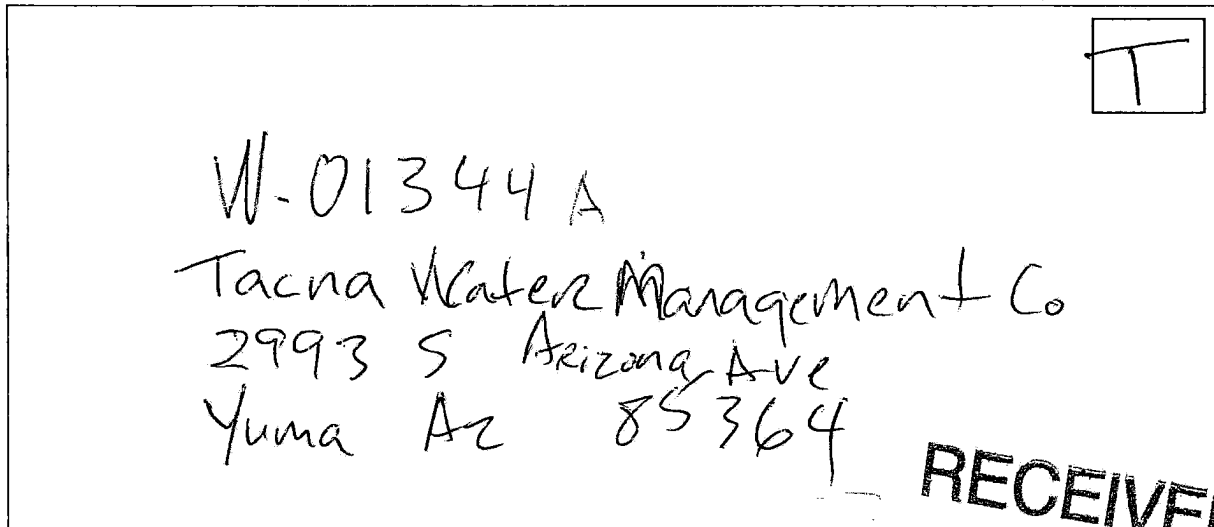 T
W-01344A
Tacna Water Management Co
2993 S Arizona Ave
Yuma Az 85364
RECEIVE